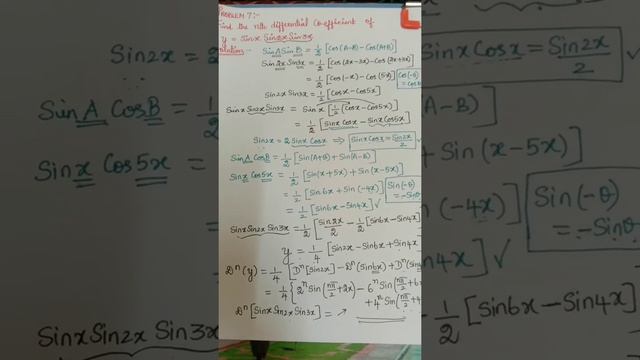 PROBLEM 7:-
Find the nth differential Co-efficient of
y = Sinx Sin2x Sin3x
Sin A Sin B = 1/2 [Cos(A-B) - Cos(A+B)]
Sin2x Sin3x = 1/2 [Cos(2x-3x) - Cos(2x+3x)]
= 1/2 [Cos(-x) - Cos(5x)] Cos(-θ) = Cosθ
Sin2x Sin3x = 1/2 [Cosx - Cos5x]
Sinx Sin2x Sin3x = Sinx [1/2 (Cosx - Cos5x)]
= 1/2 [Sinx Cosx - Sinx Cos5x]
Sin2x = 2 Sinx Cosx ⇒ Sinx Cosx = Sin2x/2
Sin A Cos B = 1/2 [Sin(A+B) + Sin(A-B)]
Sinx Cos5x = 1/2 [Sin(x+5x) + Sin(x-5x)]
= 1/2 [Sin6x + Sin(-4x)]
= 1/2 [Sin6x - Sin4x] ✓
Sinx Sin2x Sin3x = 1/2 [Sin2x/2 - 1/2 [Sin6x - Sin4x]
y = 1/4 [Sin2x - Sin6x + Sin4x
Dⁿ(y) = 1/4 [Dⁿ[Sin2x] - Dⁿ(Sin6x) + Dⁿ(Sin
= 1/4 {2ⁿ Sin(nπ/2 + 2x) - 6ⁿ Sin(nπ/2 + 6x
+ 4ⁿ Sin(nπ/2 + 4
Dⁿ[Sinx Sin2x Sin3x] = ↗
Sin2x =
Sin A Cos B = 1
Sinx Cos5x =
Sinx Sin2x Sin3x
Sinx Cosx = Sin2x/2
A-B)]
+ Sin(x-5x)]
(-4x)]
Sin(-θ)
= -Sinθ
] ✓
- 1/2 [Sin6x - Sin4x]